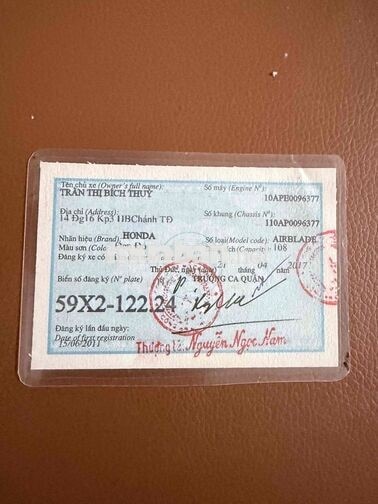 Tên chủ xe (Owner's full name):
TRẦN THỊ BÍCH THUỶ
Số máy (Engine Nº):
10APH0096377
Địa chỉ (Address):
14 Đg16 Kp3 HBChánh TĐ
Số khung (Chassis Nº):
110AP0096377
Nhãn hiệu (Brand) HONDA
Số loại(Model code): AIRBLADE
Màu sơn (Colo
108
Đăng ký xe có
Thủ Đức, ngày
tháng 04 năm 2017
Biển số đăng ký (Nº plate)
TRƯỞNG CA QUẬN
59X2-122.24
Đăng ký lần đầu ngày:
Date of first registration
15/06/2011
Thượng tá Nguyễn Ngọc Nam